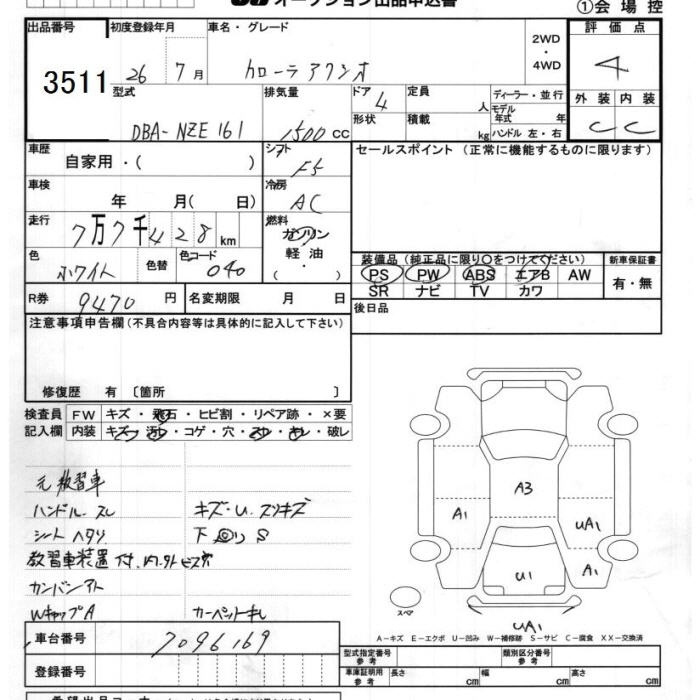 オークション出品申込書
①会場控
出品番号
3511
初度登録年月
26 7月
車名・グレード
カローラアクシオ
2WD
・
4WD
評価点
4
外装 内装
C C
型式
DBA-NZE161
排気量
1500cc
ドア 4
形状
定員 人
積載 kg
ディーラー・並行
モデル年式 年
ハンドル 左・右
車歴
自家用・( )
シフト
F5
セールスポイント (正常に機能するものに限ります)
車検
年 月( 日)
冷房
AC
走行
7万7千428km
燃料
ガソリン
・
軽油
( )
色
ホワイト
色替
色コード
040
装備品 (純正品に限り○をつけてください)
PS PW ABS エアB AW
SR ナビ TV カワ
新車保証書
有・無
R券 9470円
名変期限 月 日
後日品
注意事項申告欄(不具合内容等は具体的に記入して下さい)
修復歴 有 〔箇所 〕
検査員 FW キズ・飛石・ヒビ割・リペア跡・×要
記入欄 内装 キズ・汚れ・コゲ・穴・スレ・キレ・破レ
元教習車
ハンドルスレ キズ・U スリキズ
シートヘタリ
教習車装置付
カンバンアト
WキャップA カーペットキレ
A3
A1
UA1
U1
A1
スペア
UA1
A-キズ E-エクボ U-凹み W-補修跡 S-サビ C-腐食 XX-交換済
車台番号 7096169
登録番号
型式指定番号
参考
類別区分番号
参考
車庫証明用
参考
長さ cm 幅 cm 高さ cm